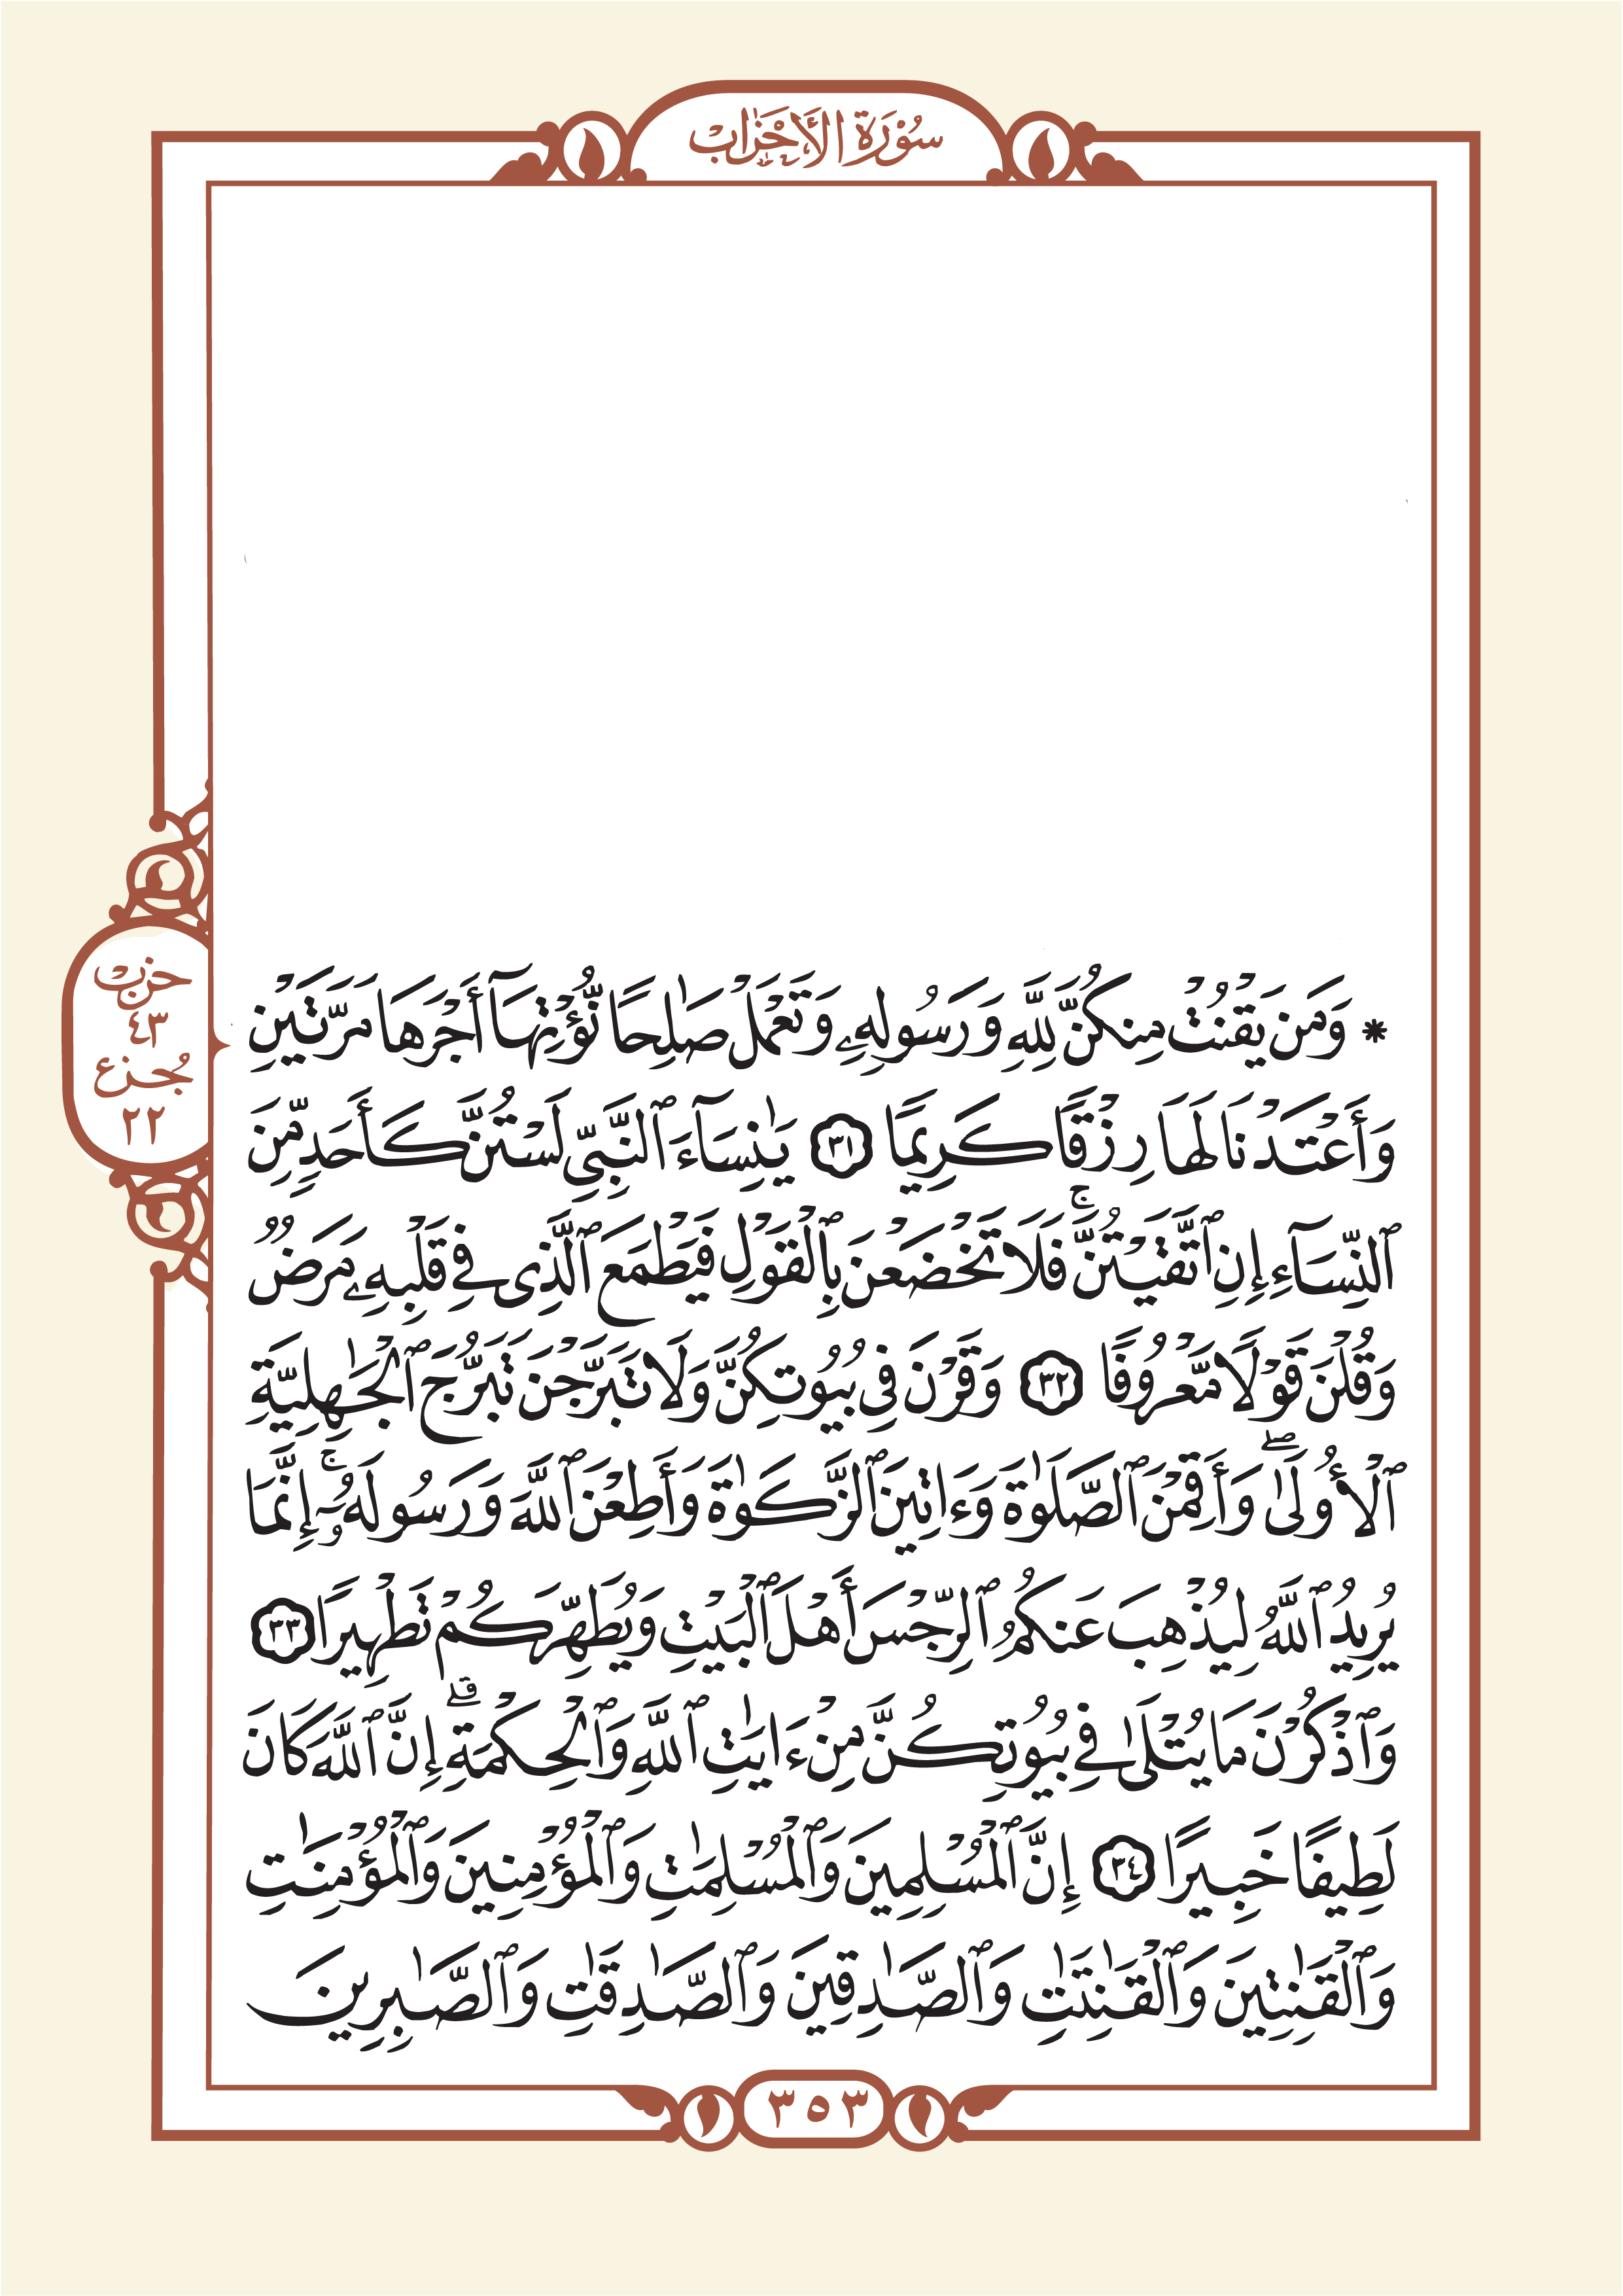 سُوْرَةُ الأَحْزَابْ
* وَمَن يَقْنُتْ مِنكُنَّ لِلَّهِ وَرَسُولِهِۦ وَتَعْمَلْ صَٰلِحًا نُّؤْتِهَآ أَجْرَهَا مَرَّتَيْنِ
وَأَعْتَدْنَا لَهَا رِزْقًا كَرِيمًا ٣١ يَٰنِسَآءَ ٱلنَّبِىِّ لَسْتُنَّ كَأَحَدٍ مِّنَ
ٱلنِّسَآءِ إِنِ ٱتَّقَيْتُنَّ ۚ فَلَا تَخْضَعْنَ بِٱلْقَوْلِ فَيَطْمَعَ ٱلَّذِى فِى قَلْبِهِۦ مَرَضٌ
وَقُلْنَ قَوْلًا مَّعْرُوفًا ٣٢ وَقَرْنَ فِى بُيُوتِكُنَّ وَلَا تَبَرَّجْنَ تَبَرُّجَ ٱلْجَٰهِلِيَّةِ
ٱلْأُولَىٰ ۖ وَأَقِمْنَ ٱلصَّلَوٰةَ وَءَاتِينَ ٱلزَّكَوٰةَ وَأَطِعْنَ ٱللَّهَ وَرَسُولَهُۥٓ ۚ إِنَّمَا
يُرِيدُ ٱللَّهُ لِيُذْهِبَ عَنكُمُ ٱلرِّجْسَ أَهْلَ ٱلْبَيْتِ وَيُطَهِّرَكُمْ تَطْهِيرًا ٣٣
وَٱذْكُرْنَ مَا يُتْلَىٰ فِى بُيُوتِكُنَّ مِنْ ءَايَٰتِ ٱللَّهِ وَٱلْحِكْمَةِ ۗ إِنَّ ٱللَّهَ كَانَ
لَطِيفًا خَبِيرًا ٣٤ إِنَّ ٱلْمُسْلِمِينَ وَٱلْمُسْلِمَٰتِ وَٱلْمُؤْمِنِينَ وَٱلْمُؤْمِنَٰتِ
وَٱلْقَٰنِتِينَ وَٱلْقَٰنِتَٰتِ وَٱلصَّٰدِقِينَ وَٱلصَّٰدِقَٰتِ وَٱلصَّٰبِرِينَ
حزبْ
٤٣
جُزع
٢٢
٣٥٣